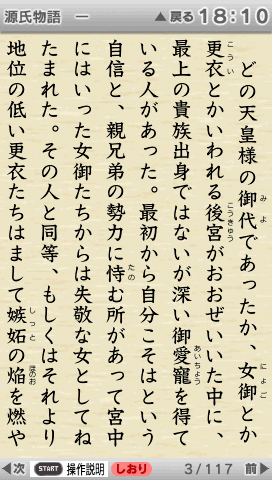 源氏物語　一
▲戻る 18:10
どの天皇様の御代であったか、女御とか
更衣とかいわれる後宮がおおぜいいた中に、
最上の貴族出身ではないが深い御愛寵を得て
いる人があった。最初から自分こそはという
自信と、親兄弟の勢力に恃む所があって宮中
にはいった女御たちからは失敬な女としてね
たまれた。その人と同等、もしくはそれより
地位の低い更衣たちはまして嫉妬の焔を燃や
みよ
にょご
こうい
こうきゅう
あいちょう
たの
しっと
ほのお
◀次 START 操作説明 しおり 3/117 前▶